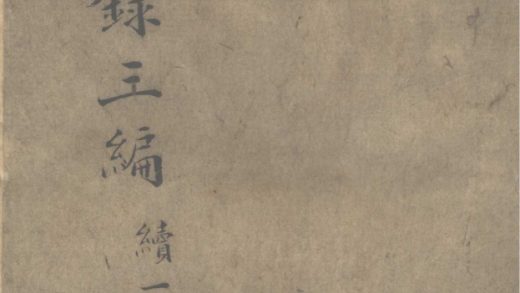 錄三編
續一